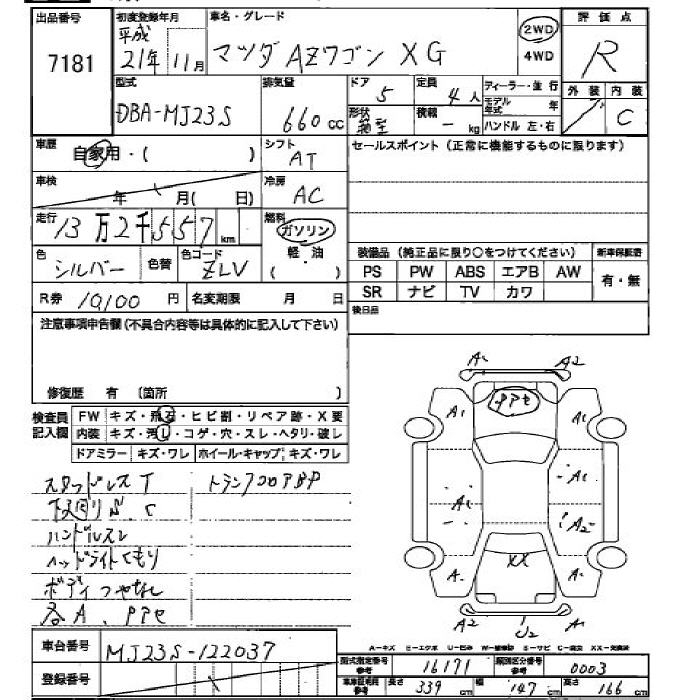 出品番号 7181
初度登録年月 平成 21年 11月
車名・グレード マツダ AZワゴン XG
2WD 4WD
評価点 R
外装 内装 C
型式 DBA-MJ23S
排気量 660 cc
ドア 5
形状 箱型
定員 4人
積載 - kg
ディーラー・並行
モデル年式 年
ハンドル 左・右
車歴 自家用・( )
シフト AT
車検 年 月( 日)
冷房 AC
走行 13万2千557 km
燃料 ガソリン 軽・油 ( )
色 シルバー 色替 色コード ZLV
R券 10100 円 名変期限 月 日
セールスポイント (正常に機能するものに限ります)
装備品 (純正品に限り○をつけてください)
新車保証書 有・無
PS PW ABS エアB AW
SR ナビ TV カワ
後日品
注意事項申告欄(不具合内容等は具体的に記入して下さい)
修復歴 有 (箇所 )
検査員記入欄
FW キズ・飛石・ヒビ割・リペア跡・X要
内装 キズ・汚し・コゲ・穴・スレ・ヘタリ・破レ
ドアミラー キズ・ワレ ホイール・キャップ キズ・ワレ
スタッドレスT トランクフロアBP
下廻りS、C
ハンドルスレ
ヘッドライトくもり
ボディつやなし
各A、PPセ
A1 A2
A1 PPセ A1
A1 A1
A2
XX
A- A-
A2 U2 A2
車台番号 MJ23S-122037
登録番号
A-キズ E-エクボ U-凹み W-補修跡 S-サビ C-腐食 XX-交換済
型式指定番号 参考 16171 類別区分番号 参考 0003
車車証明用 参考 長さ 339 cm 幅 147 cm 高さ 166 cm